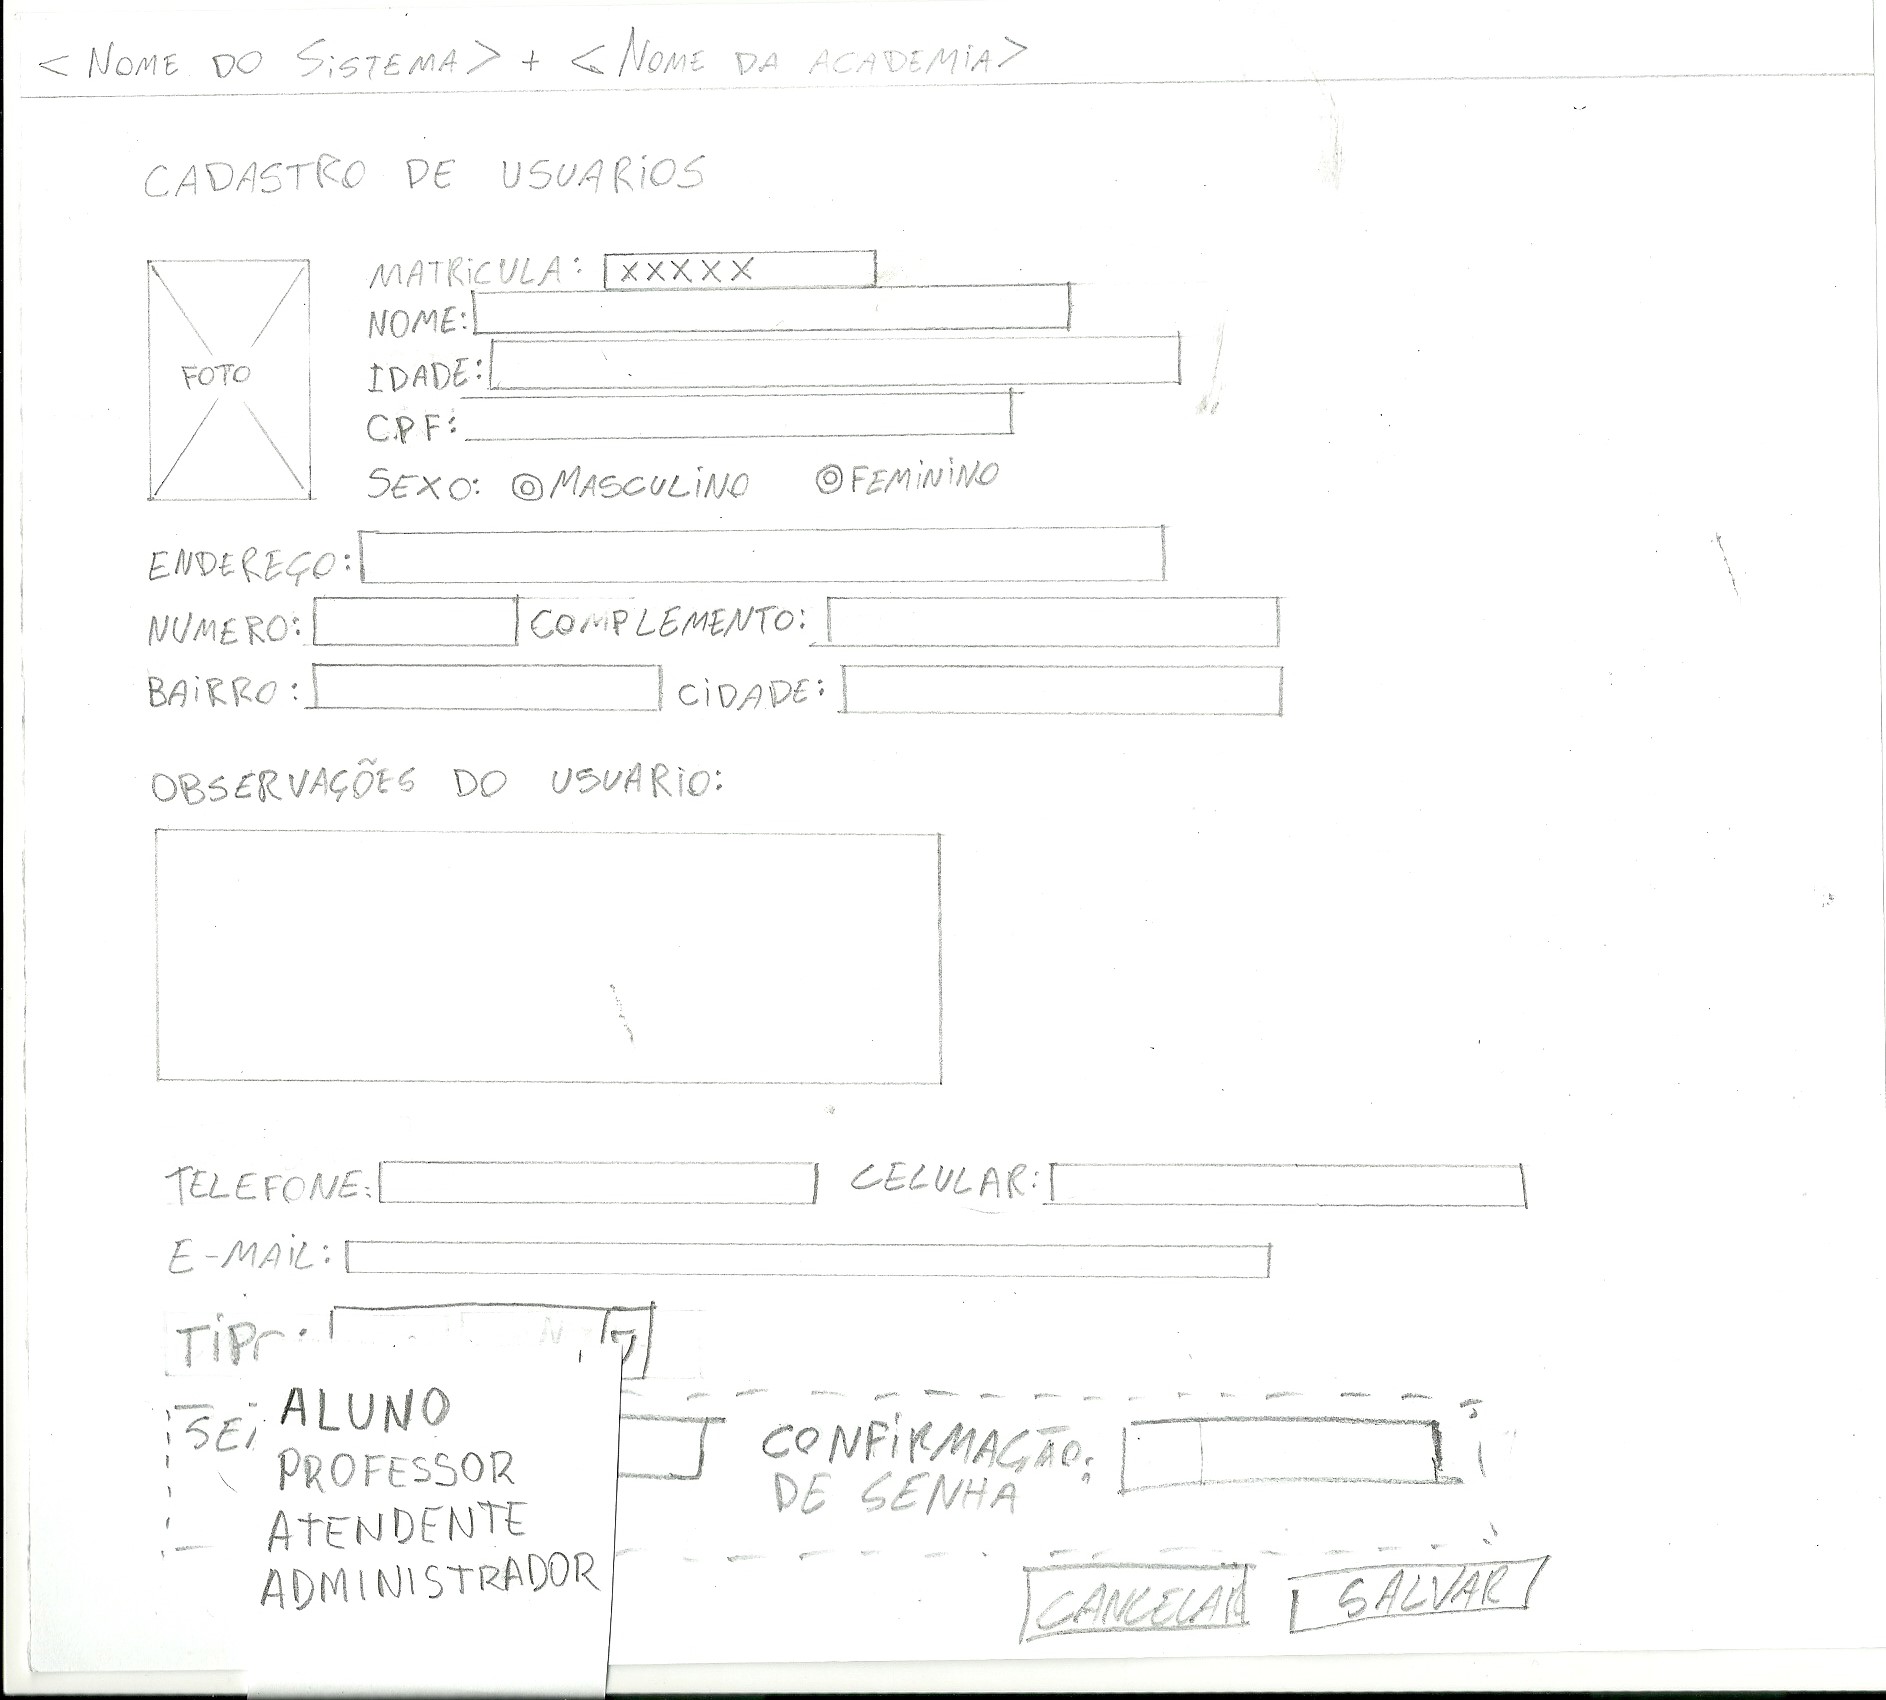 <NOME DO SISTEMA> + <NOME DA ACADEMIA>
CADASTRO DE USUARIOS
FOTO
MATRiCULA: XXXXX
NOME:
IDADE:
C.P.F:
SEXO: MASCULiNO FEMiNiNO
ENDEREÇO:
NUMERO: COMPLEMENTO:
BAiRRO: CiDADE:
OBSERVAÇÕES DO USUARiO:
TELEFONE: CELULAR:
E-MAiL:
TiP
ALUNO
PROFESSOR
ATENDENTE
ADMINISTRADOR
CONFiRMAÇÃO:
DE SENHA
CANCELAR SALVAR